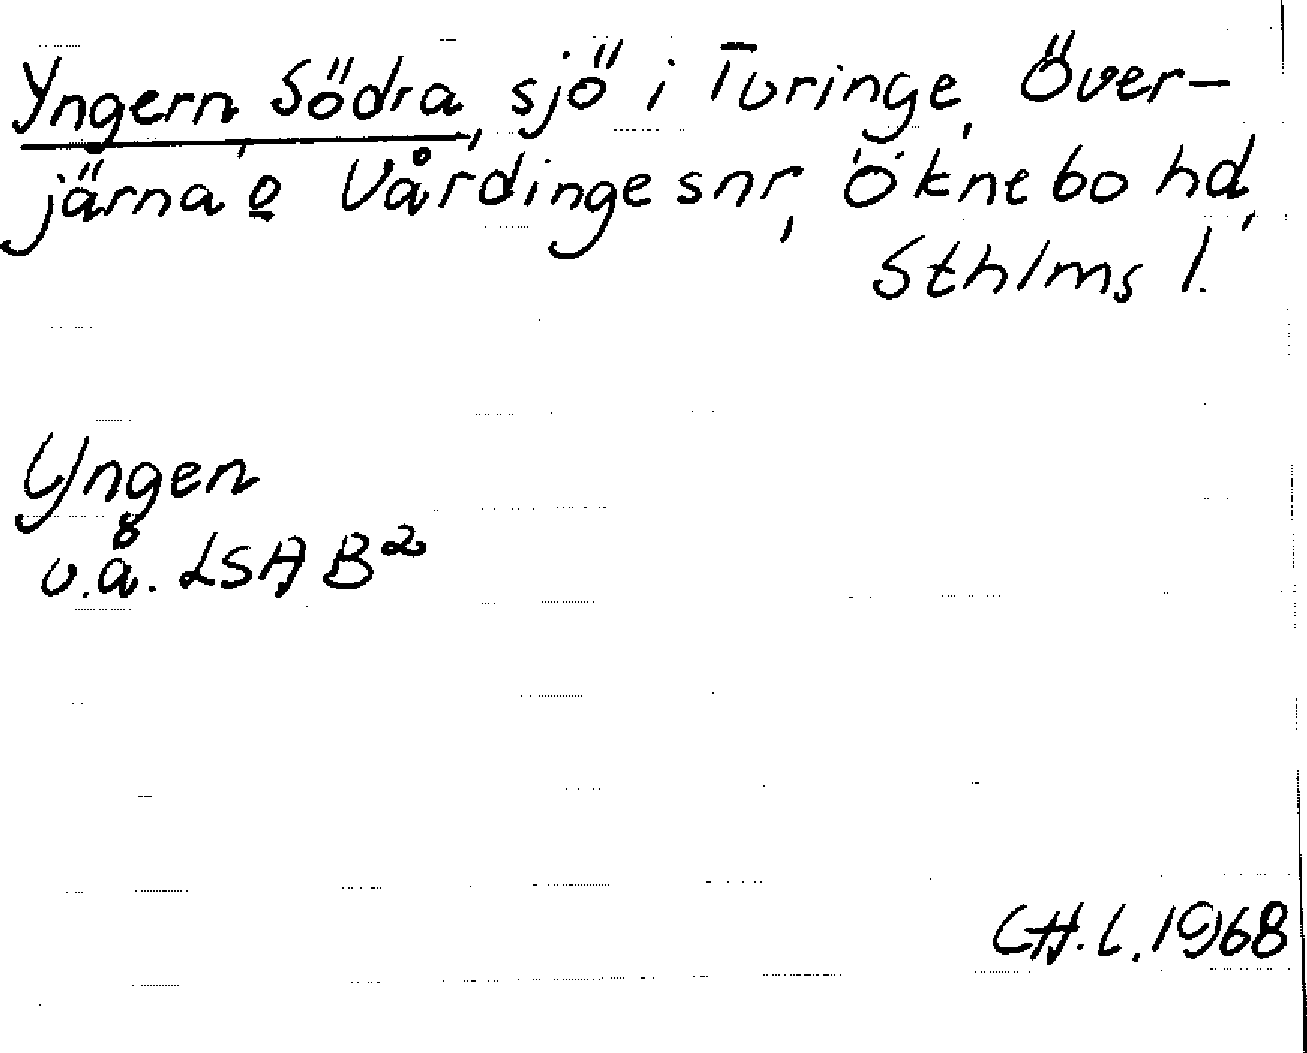 Yngern, Södra, sjö i Turinge, Över-
järna o Vårdinge snr, Öknebo hd,
Sthlms l.
Yngen
u.å. LSA B²
CH.L. 1968